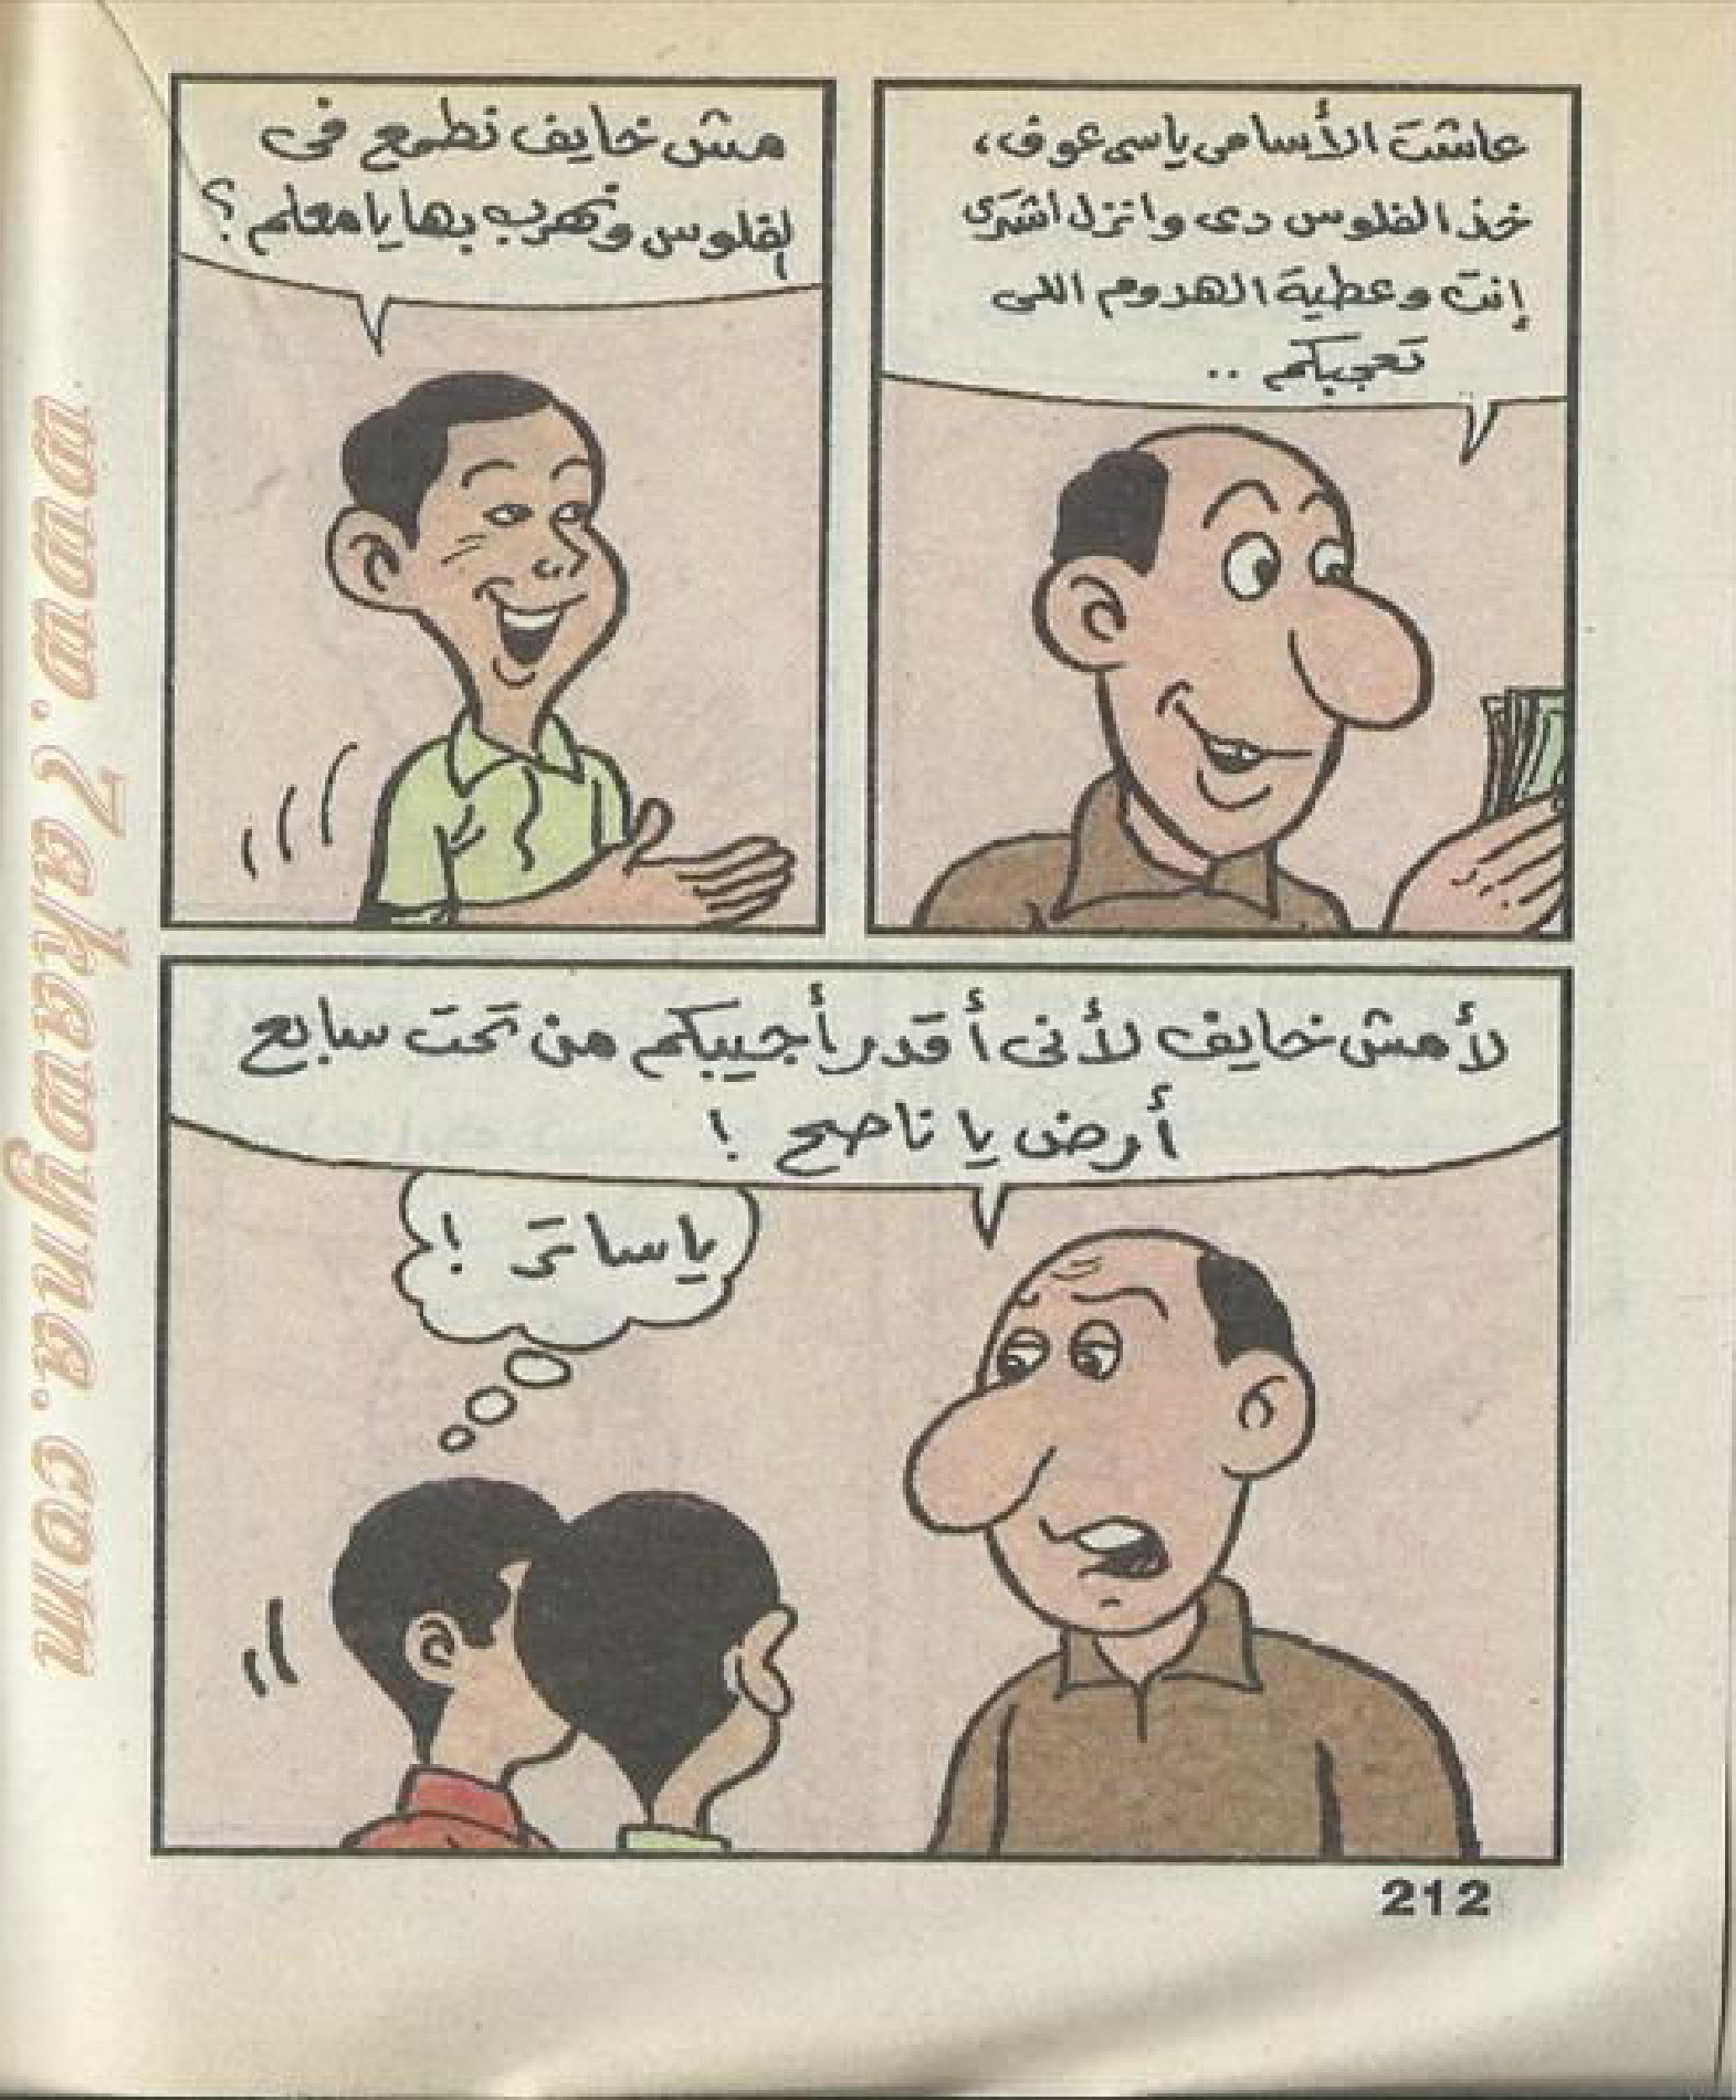 عاشت الأسامى ياسى عوف،
خذ الفلوس دى وانزل اشترى
إنت وعطية الهدوم اللى
تعجبكم ..
مش خايف نطمع فى
الفلوس ونهرب بها يا معلم؟
لأ مش خايف لأنى أقدر أجيبكم من تحت سابع
أرض يا ناصح !
ياساتر !
212
www.7akawyna.com